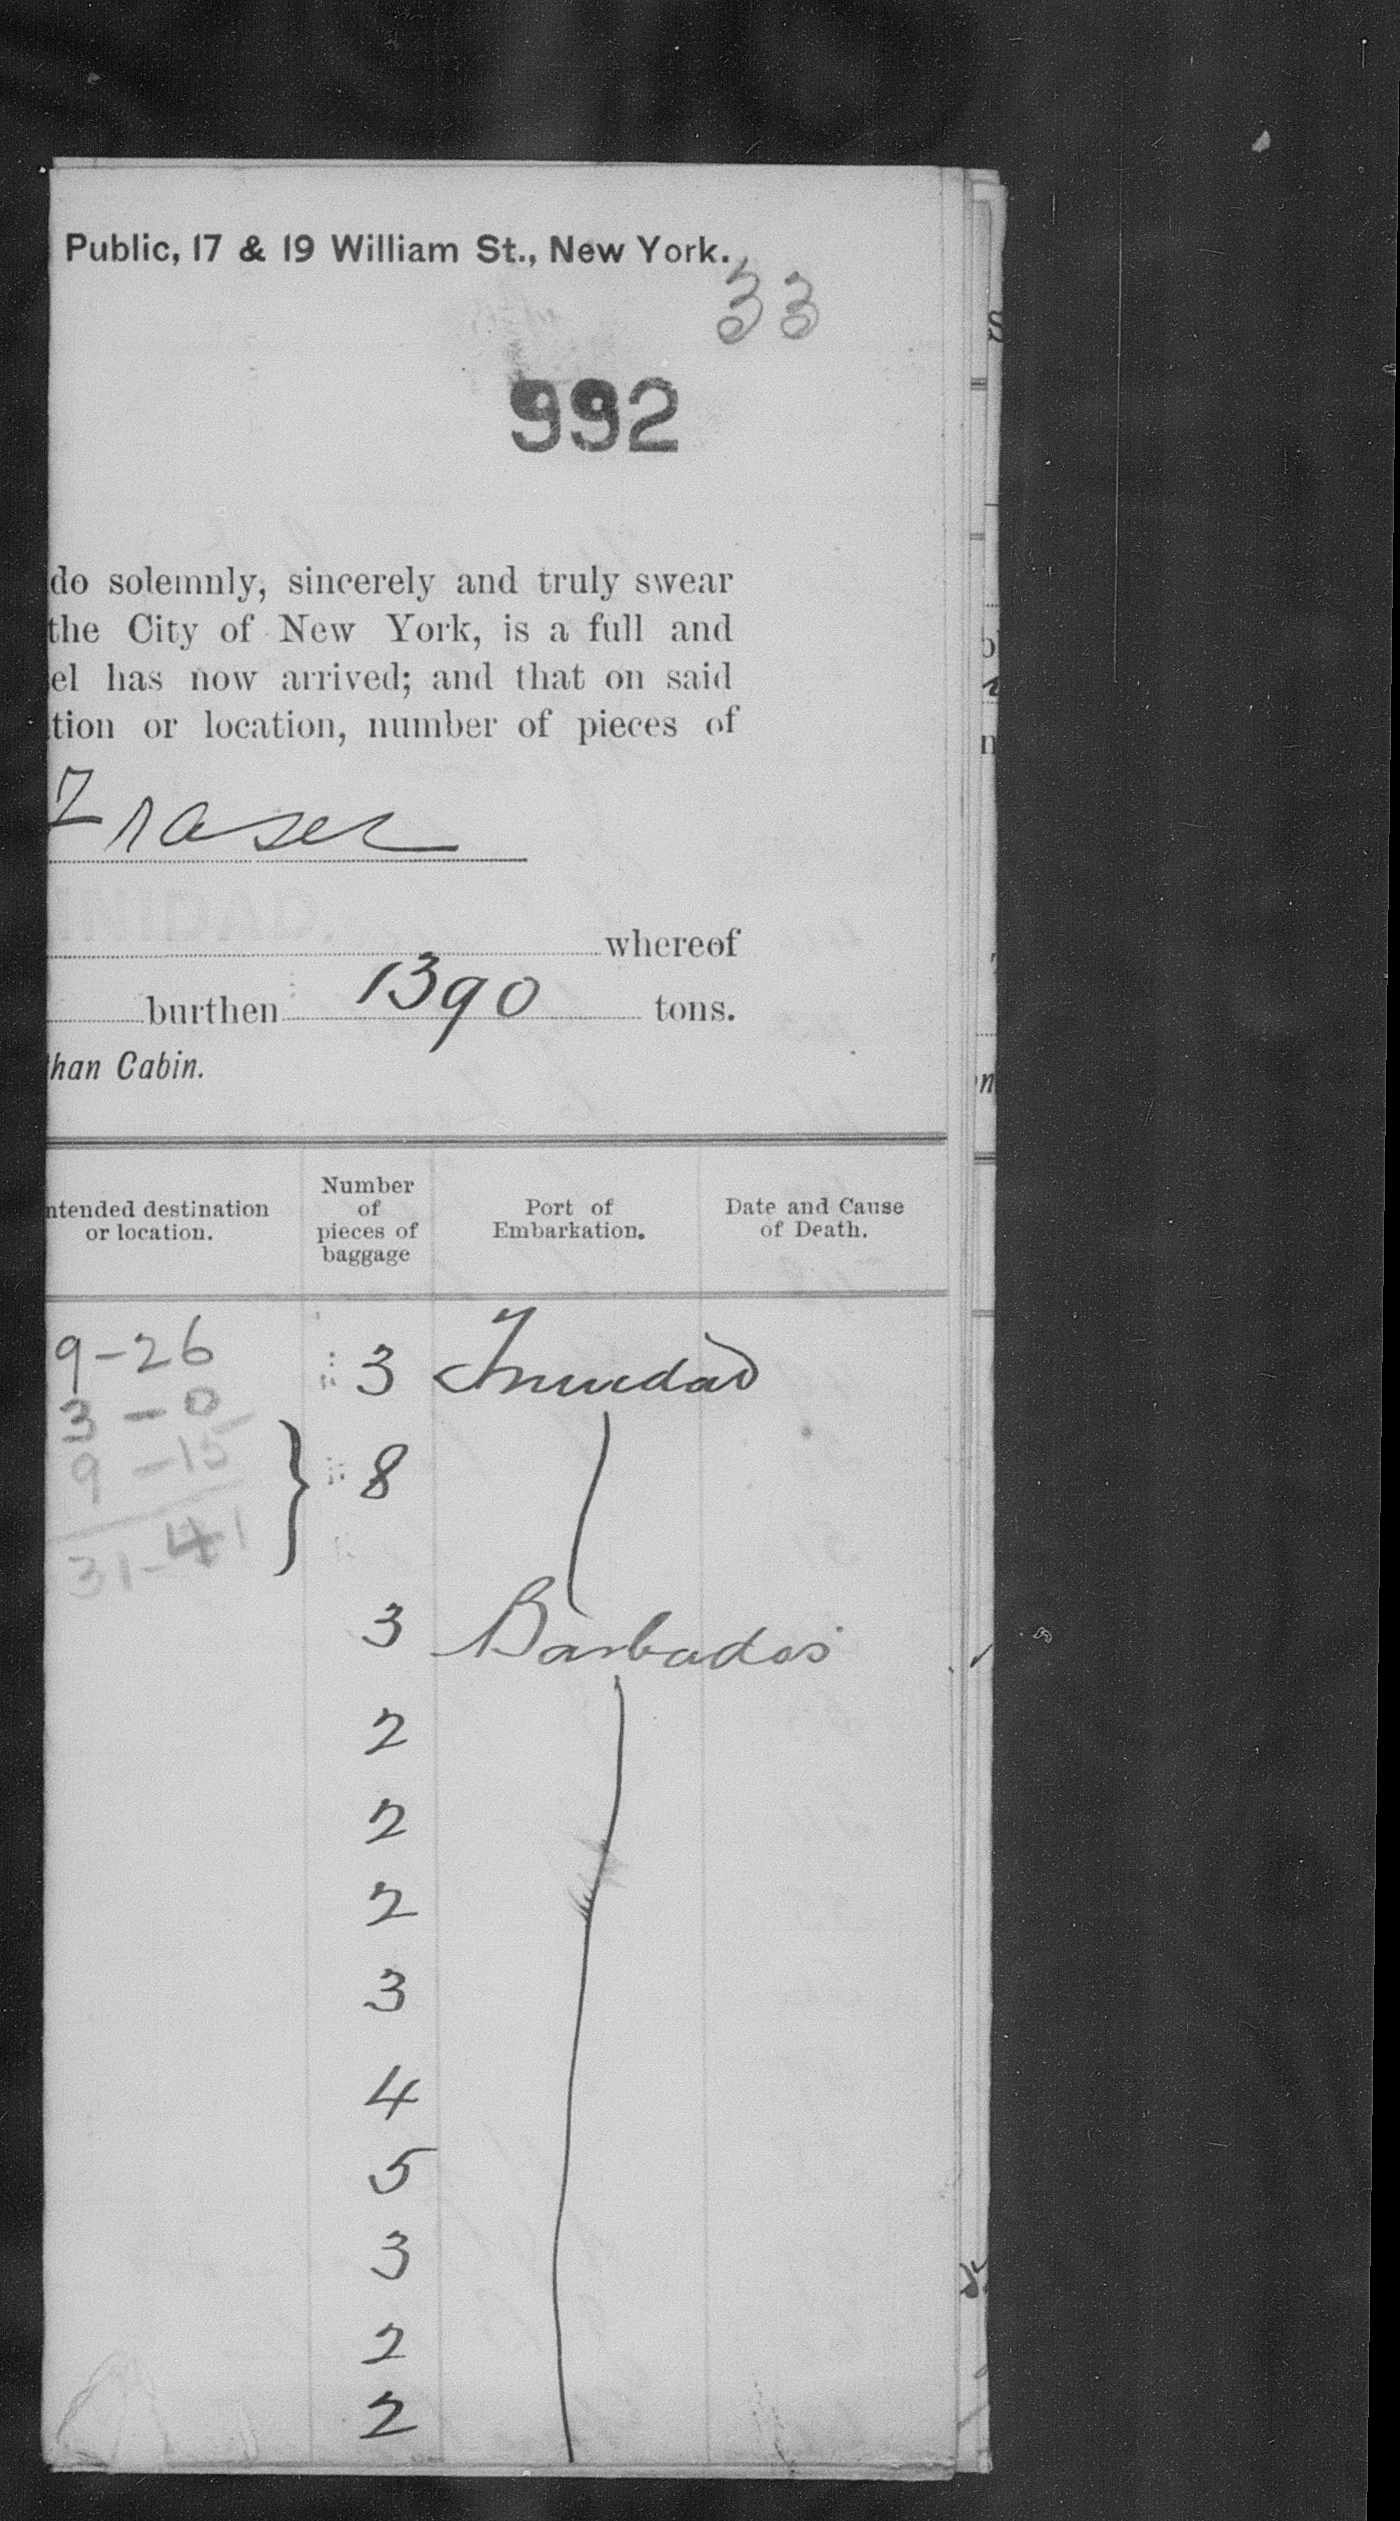 Public, 17 & 19 William St., New York.
33
992
do solemnly, sincerely and truly swear
the City of New York, is a full and
el has now arrived; and that on said
tion or location, number of pieces of
Fraser
INIDAD.
whereof
burthen 1390 tons.
han Cabin.
ntended destination or location.
Number of pieces of baggage
Port of Embarkation.
Date and Cause of Death.
9-26
3 Trinidad
3-0
9-15
} 8
31-41
3 Barbados
2
2
2
3
4
5
3
2
2